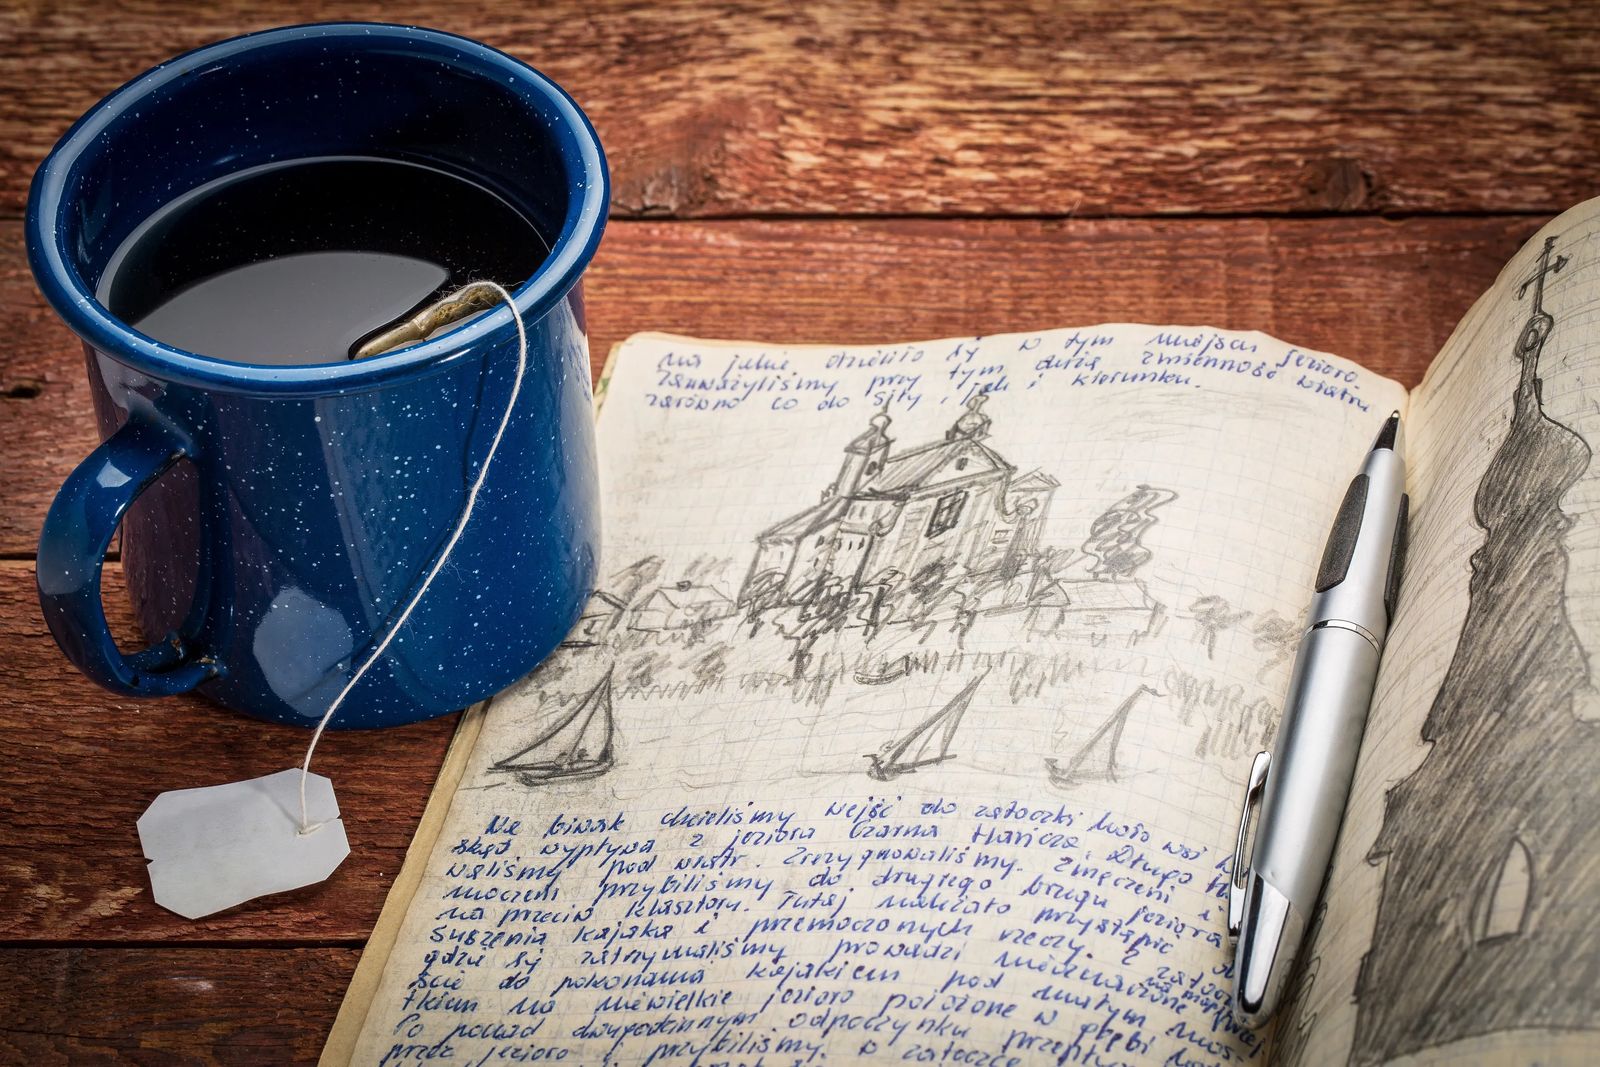 na jakie dzieliło się w tym miejscu jezioro.
Zauważyliśmy przy tym dużą zmienność wiatru
zarówno co do siły, jak i kierunku.
Na biwak chcieliśmy wejść do zatoczki koło wsi
skąd wypływa z jeziora Czarna Hańcza. Długo
waliśmy pod wiatr. Zrezygnowaliśmy. Zmęczeni i
moczeni przybiliśmy do drugiego brzegu jeziora
na przeciw klasztoru. Tutaj należało przystąpić do
suszenia kajaka i przemoczonych rzeczy. Z zatoczki
gdzie się zatrzymaliśmy prowadzi
ście do pokonania kajakiem pod małym mos-
tkiem na niewielkie jezioro położone w głębi
Po ponad dwugodzinnym odpoczynku
przez jezioro i przybiliśmy w zatoczce